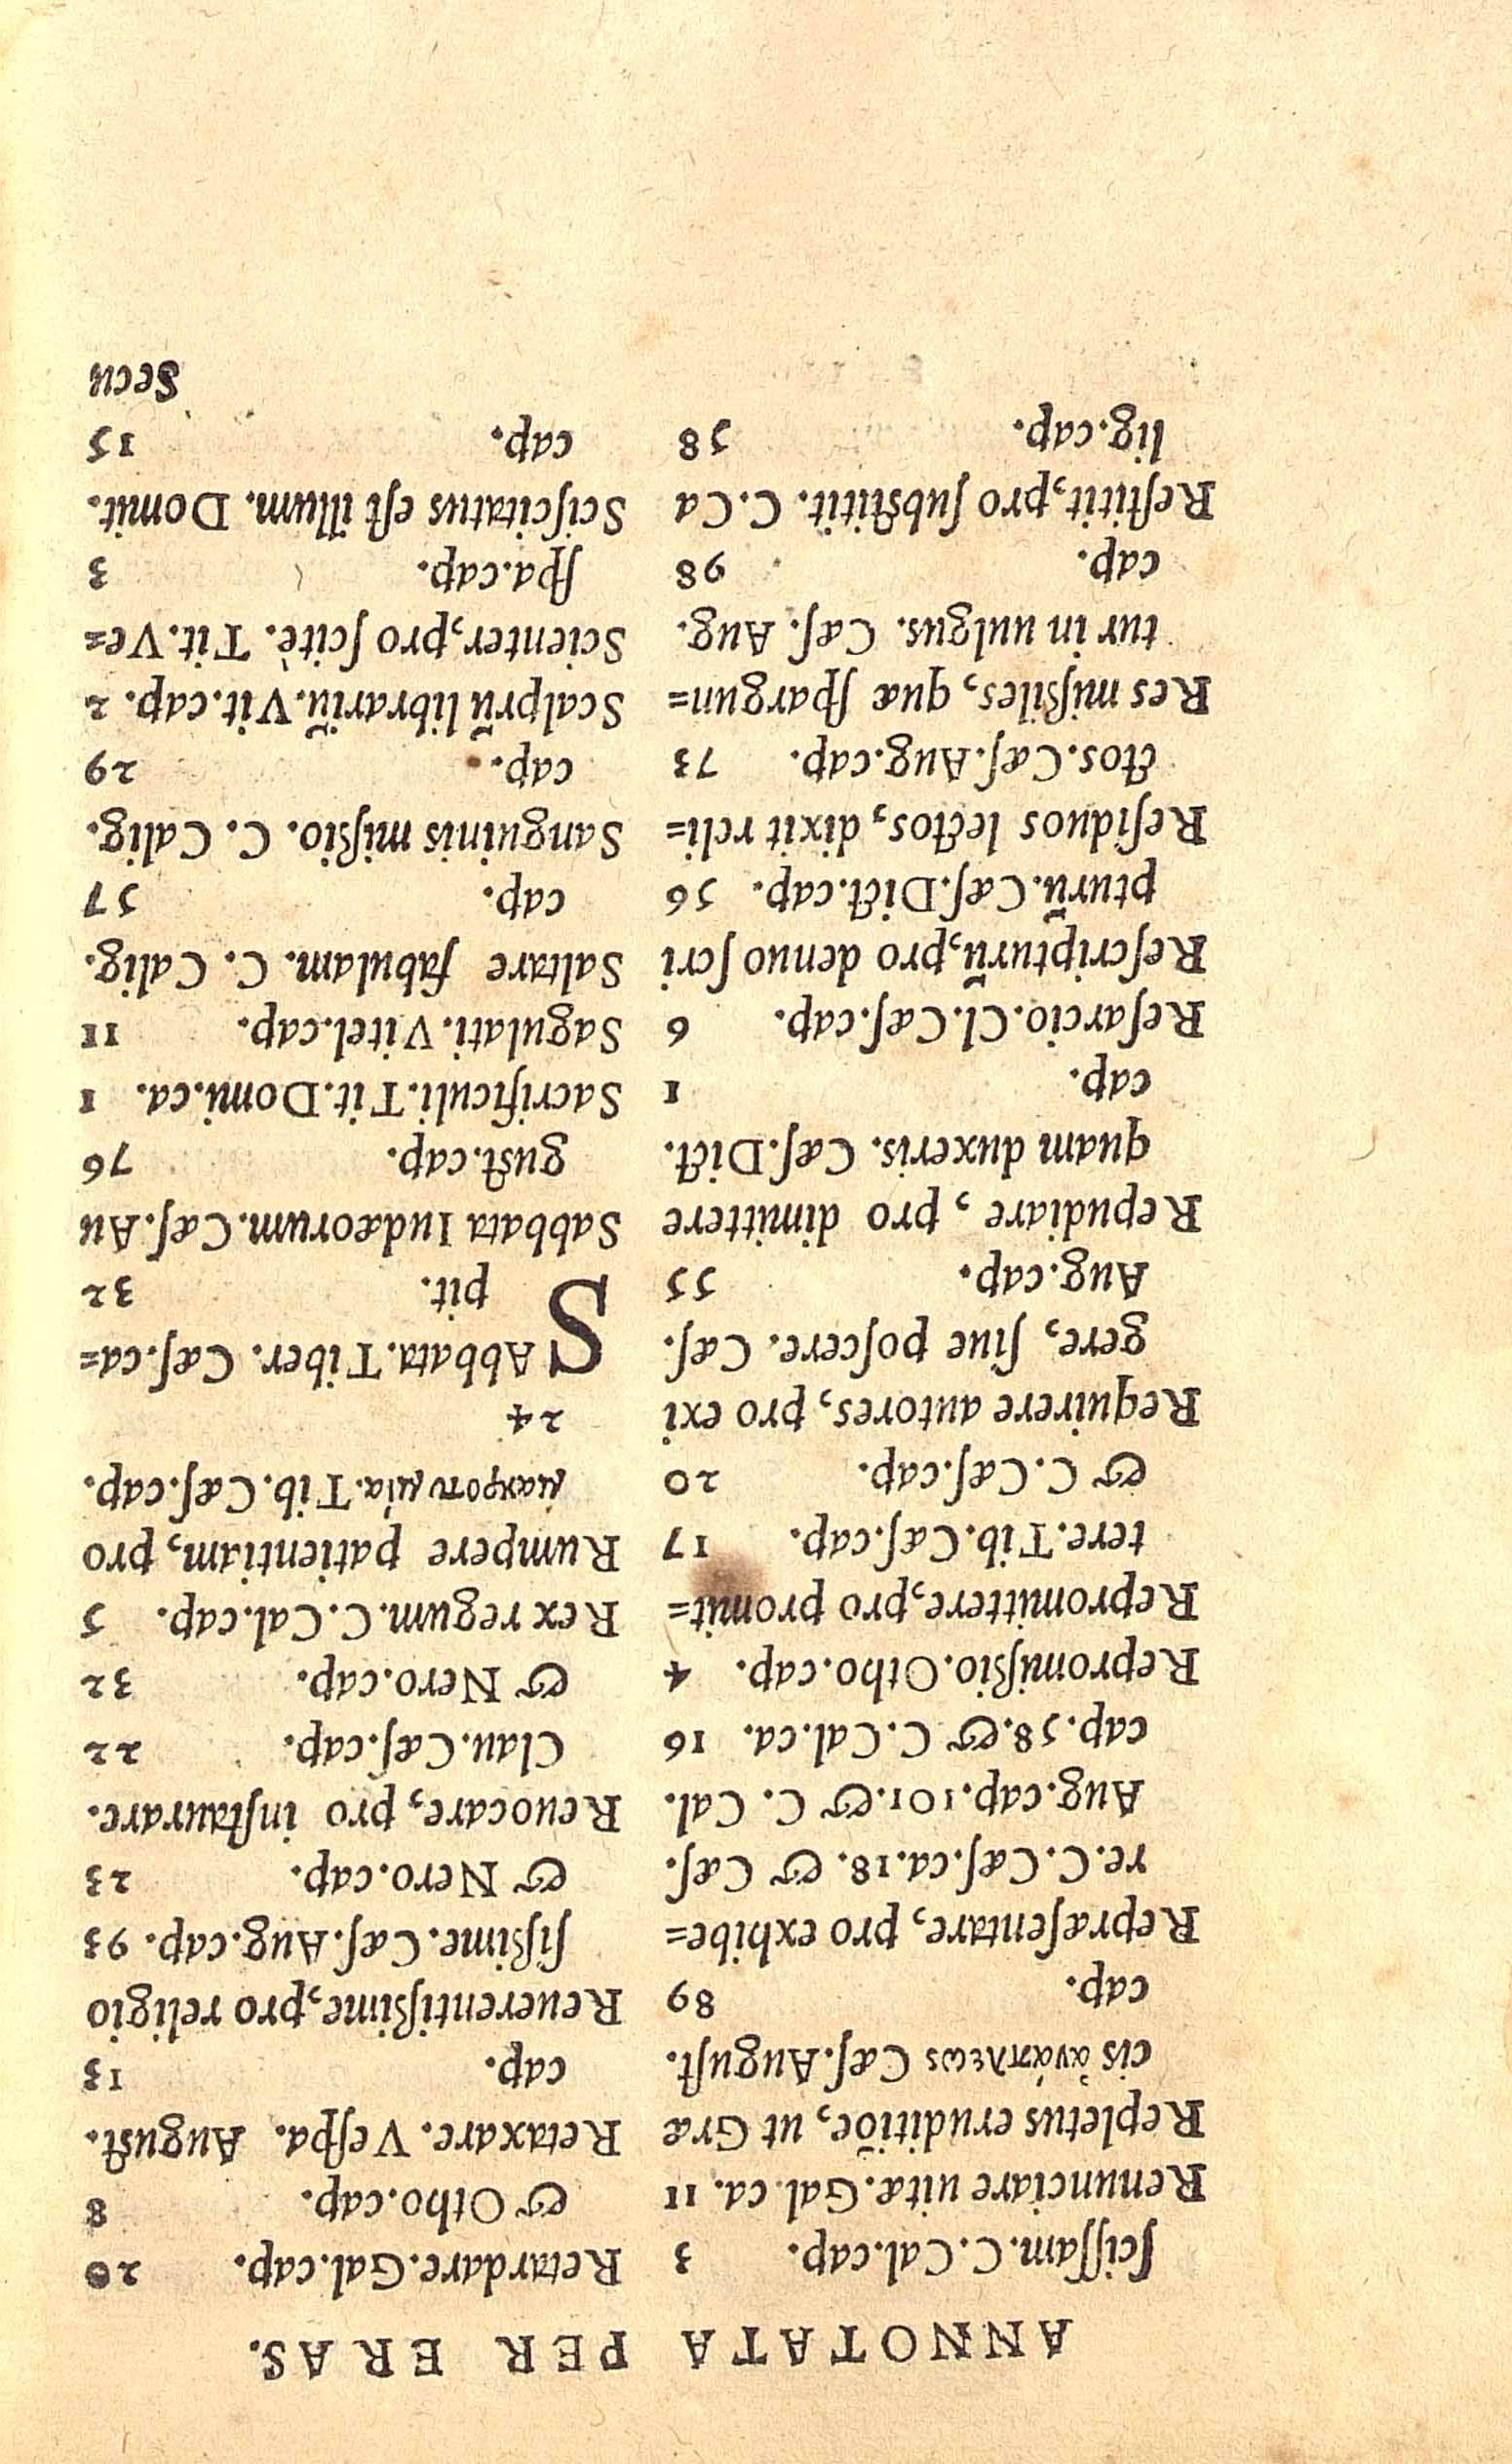 ANNOTATA PER ERAS.
ſciſſam. C. Cal. cap. 3
Renunciare uitæ. Gal. ca. 11
Repletus eruditiõe, ut Græ
cis ἀνάπλεως Cæſ. Auguſt.
cap. 89
Repræſentare, pro exhibe=
re. C. Cæſ. ca. 18. & Cæſ.
Aug. cap. 101. & C. Cal.
cap. 58. & C. Cal. ca. 16
Repromiſsio. Otho. cap. 4
Repromittere, pro promit=
tere. Tib. Cæſ. cap. 17
& C. Cæſ. cap. 20
Requirere autores, pro exi
gere, ſiue poſcere. Cæſ.
Aug. cap. 55
Repudiare, pro dimittere
quam duxeris. Cæſ. Dict.
cap. 1
Reſarcio. Cl. Cæſ. cap. 6
Reſcripturũ, pro denuo ſcri
pturũ. Cæſ. Dict. cap. 56
Reſiduos lectos, dixit reli=
ctos. Cæſ. Aug. cap. 73
Res miſsiles, quæ ſpargun=
tur in uulgus. Cæſ. Aug.
cap. 98
Reſtitit, pro ſubſtitit. C. Ca
lig. cap. 58
Retardare. Gal. cap. 20
& Otho. cap. 8
Retaxare. Veſpa. Auguſt.
cap. 13
Reuerentiſsime, pro religio
ſiſsime. Cæſ. Aug. cap. 93
& Nero. cap. 23
Reuocare, pro inſtaurare.
Clau. Cæſ. cap. 22
& Nero. cap. 32
Rex regum. C. Cal. cap. 5
Rumpere patientiam, pro
μακροτυμία. Tib. Cæſ. cap.
24
SAbbata. Tiber. Cæſ. ca=
pit. 32
Sabbata Iudæorum. Cæſ. Au
guſt. cap. 76
Sacrificuli. Tit. Domi. ca. 1
Sagulati. Vitel. cap. 11
Saltare fabulam. C. Calig.
cap. 57
Sanguinis miſsio. C. Calig.
cap. 29
Scalprũ librariũ. Vit. cap. 2
Scienter, pro ſcitè. Tit. Ve=
ſpa. cap. 3
Sciſcitatus eſt illum. Domit.
cap. 15
Secu